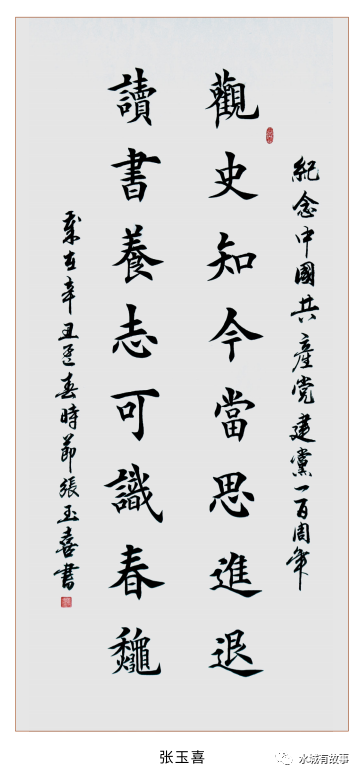 紀念中國共產党建黨一百周年
觀史知今當思進退
讀書養志可識春龝
歲在辛丑孟春時節張玉喜書
张玉喜
水城有故事